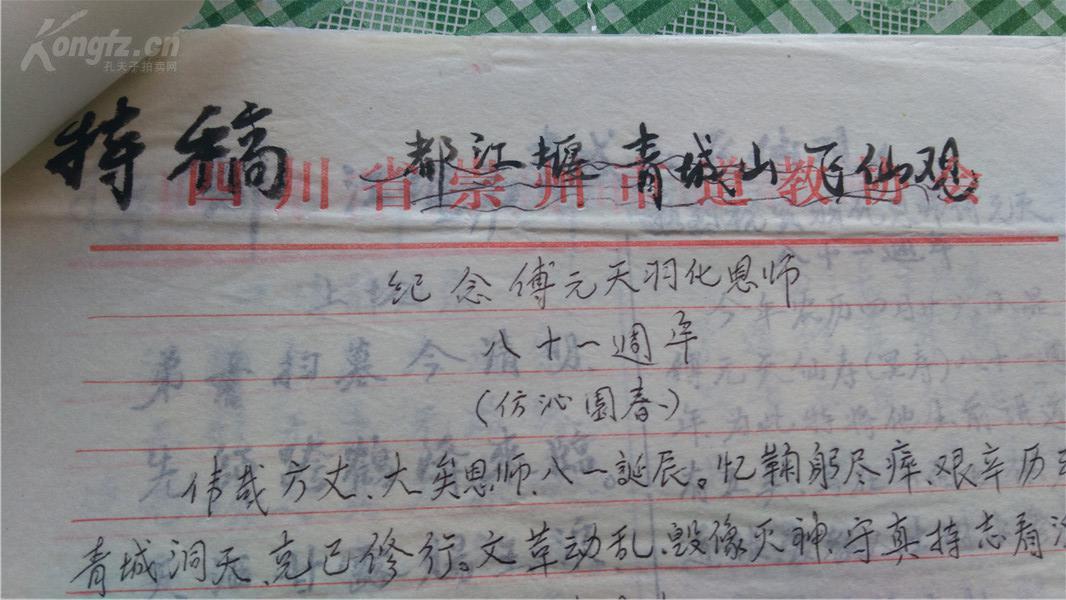 Kongfz.cn
孔夫子拍卖网
特稿 都江堰青城山飞仙观
四川省崇州市道教协会
纪念傅元天羽化恩师
八十一週年
(仿沁園春)
伟哉方丈、大矣恩师、八一誕辰。忆鞠躬尽瘁、艰辛历
青城洞天、克己修行。文革动乱、毁像灭神、守真持志看